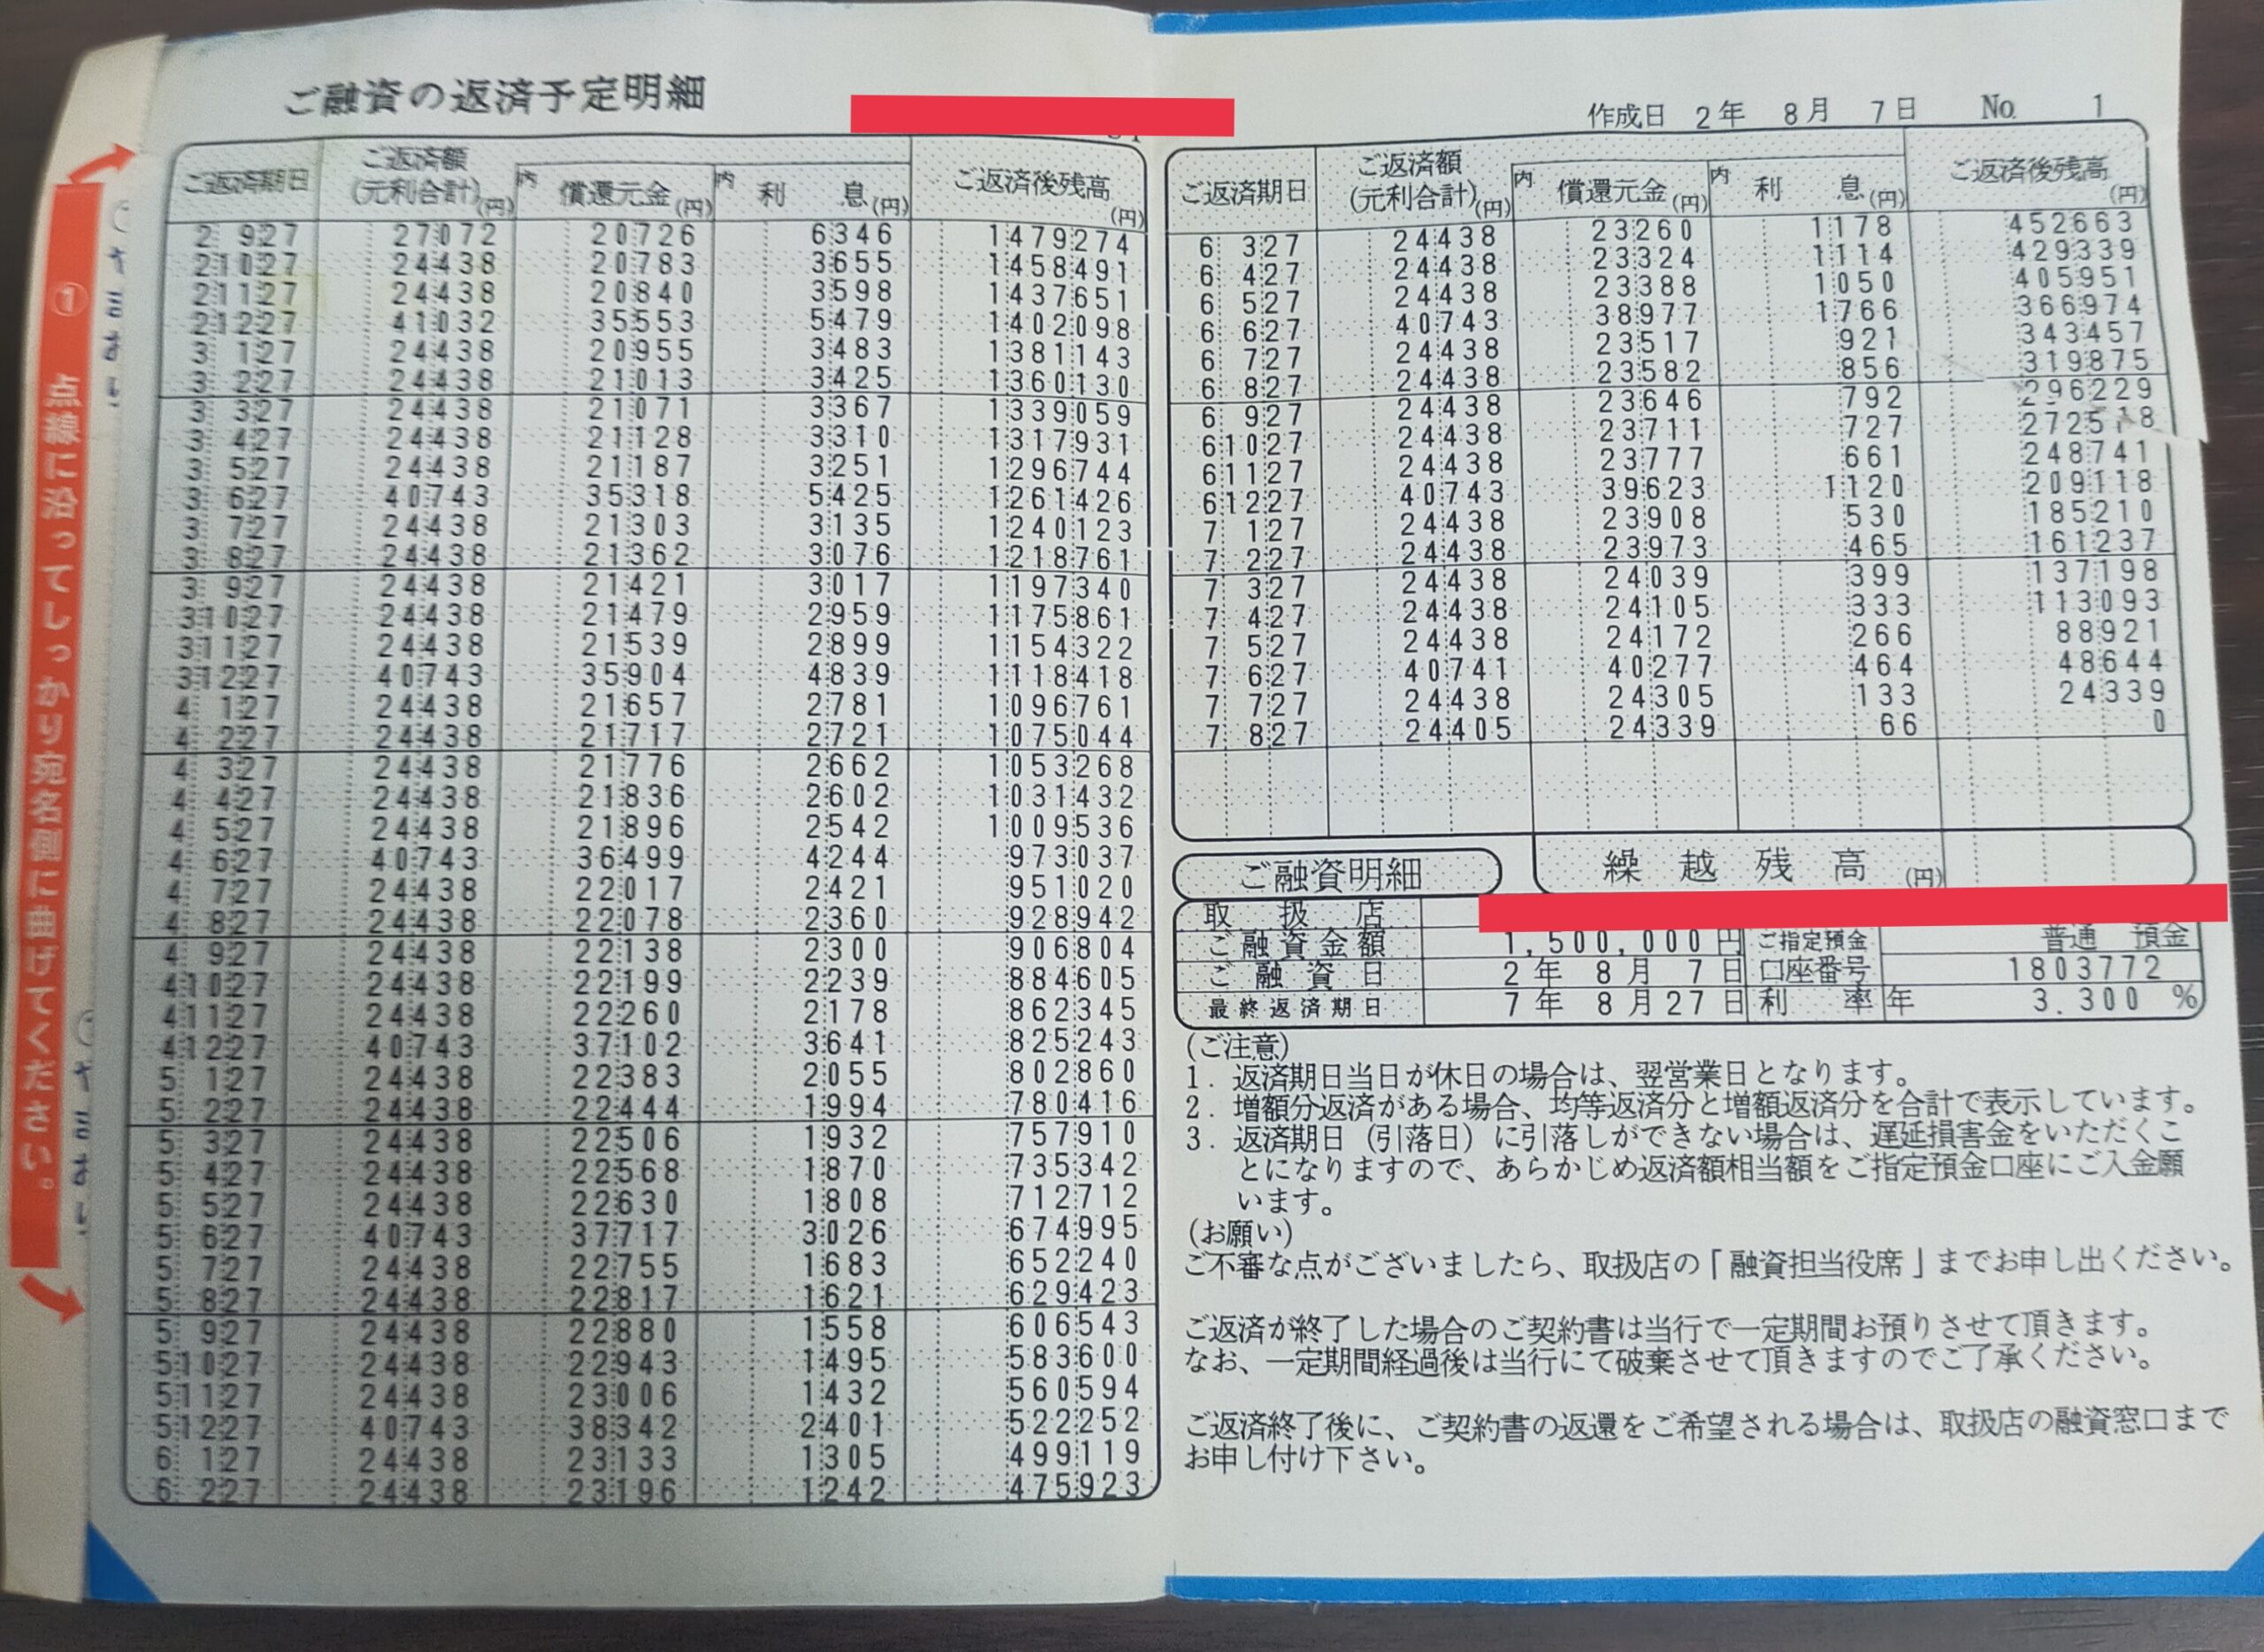 ご融資の返済予定明細
作成日 2年 8月 7日 No. 1
ご返済期日 ご返済額(元利合計)(円) 内 償還元金(円) 内 利 息(円) ご返済後残高(円)
2 927 27072 20726 6346 1479274
21027 24438 20783 3655 1458491
21127 24438 20840 3598 1437651
21227 41032 35553 5479 1402098
3 127 24438 20955 3483 1381143
3 227 24438 21013 3425 1360130
3 327 24438 21071 3367 1339059
3 427 24438 21128 3310 1317931
3 527 24438 21187 3251 1296744
3 627 40743 35318 5425 1261426
3 727 24438 21303 3135 1240123
3 827 24438 21362 3076 1218761
3 927 24438 21421 3017 1197340
31027 24438 21479 2959 1175861
31127 24438 21539 2899 1154322
31227 40743 35904 4839 1118418
4 127 24438 21657 2781 1096761
4 227 24438 21717 2721 1075044
4 327 24438 21776 2662 1053268
4 427 24438 21836 2602 1031432
4 527 24438 21896 2542 1009536
4 627 40743 36499 4244 973037
4 727 24438 22017 2421 951020
4 827 24438 22078 2360 928942
4 927 24438 22138 2300 906804
41027 24438 22199 2239 884605
41127 24438 22260 2178 862345
41227 40743 37102 3641 825243
5 127 24438 22383 2055 802860
5 227 24438 22444 1994 780416
5 327 24438 22506 1932 757910
5 427 24438 22568 1870 735342
5 527 24438 22630 1808 712712
5 627 40743 37717 3026 674995
5 727 24438 22755 1683 652240
5 827 24438 22817 1621 629423
5 927 24438 22880 1558 606543
51027 24438 22943 1495 583600
51127 24438 23006 1432 560594
51227 40743 38342 2401 522252
6 127 24438 23133 1305 499119
6 227 24438 23196 1242 475923
ご返済期日 ご返済額(元利合計)(円) 内 償還元金(円) 内 利 息(円) ご返済後残高(円)
6 327 24438 23260 1178 452663
6 427 24438 23324 1114 429339
6 527 24438 23388 1050 405951
6 627 40743 38977 1766 366974
6 727 24438 23517 921 343457
6 827 24438 23582 856 319875
6 927 24438 23646 792 296229
61027 24438 23711 727 272518
61127 24438 23777 661 248741
61227 40743 39623 1120 209118
7 127 24438 23908 530 185210
7 227 24438 23973 465 161237
7 327 24438 24039 399 137198
7 427 24438 24105 333 113093
7 527 24438 24172 266 88921
7 627 40741 40277 464 48644
7 727 24438 24305 133 24339
7 827 24405 24339 66 0
ご融資明細 繰越残高 (円)
取扱店
ご融資金額 1,500,000円 ご指定預金 普通 預金
ご融資日 2年 8月 7日 口座番号 1803772
最終返済期日 7年 8月27日 利率 年 3.300 %
(ご注意)
1. 返済期日当日が休日の場合は、翌営業日となります。
2. 増額分返済がある場合、均等返済分と増額返済分を合計で表示しています。
3. 返済期日(引落日)に引落しができない場合は、遅延損害金をいただくこ
とになりますので、あらかじめ返済額相当額をご指定預金口座にご入金願
います。
(お願い)
ご不審な点がございましたら、取扱店の「融資担当役席」までお申し出ください。
ご返済が終了した場合のご契約書は当行で一定期間お預りさせて頂きます。
なお、一定期間経過後は当行にて破棄させて頂きますのでご了承ください。
ご返済終了後に、ご契約書の返還をご希望される場合は、取扱店の融資窓口まで
お申し付け下さい。
① 点線に沿ってしっかり宛名側に曲げてください。